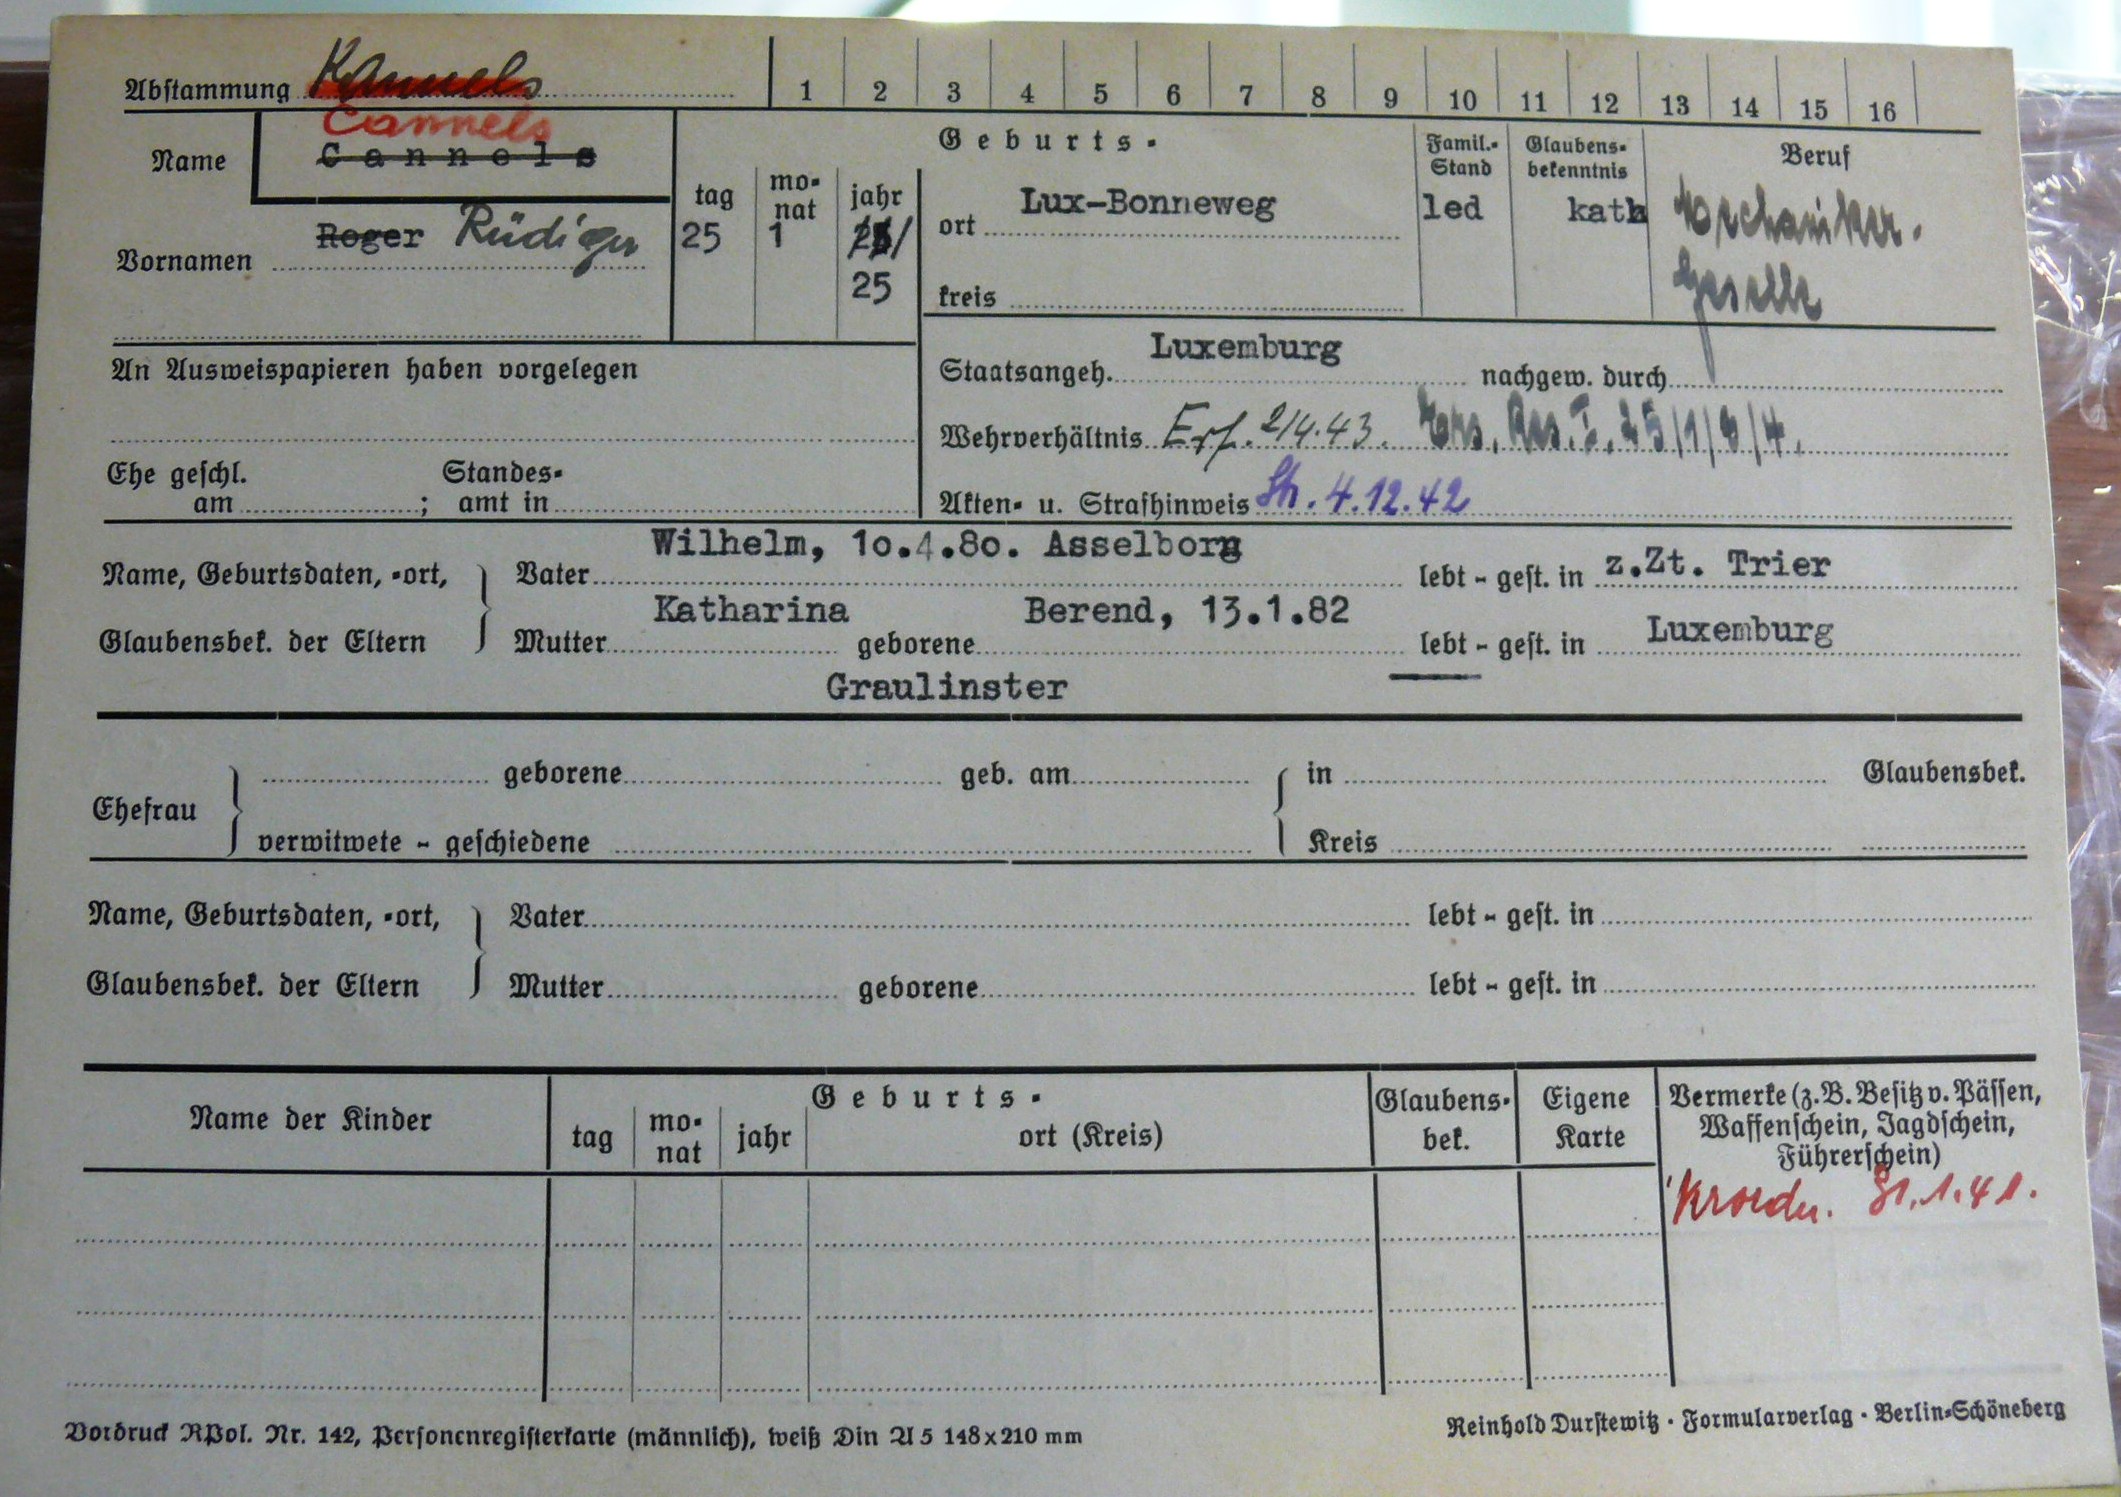 Abstammung Kannels 1 2 3 4 5 6 7 8 9 10 11 12 13 14 15 16
Cannels
Name Cannels
Vornamen Roger Rüdiger
Geburts-
tag mo-nat jahr
25 1 25
ort Lux-Bonneweg
kreis
Famil.-Stand
led
Glaubens-bekenntnis
kath
Beruf
Mechaniker-
Geselle
An Ausweispapieren haben vorgelegen
Staatsangeh. Luxemburg nachgew. durch
Wehrverhältnis Erf. 2/4.43. Ers. Res. I.
Ehe geschl. am ; Standes-amt in
Akten- u. Strafhinweis Str. 4.12.42
Name, Geburtsdaten, -ort,
Glaubensbek. der Eltern
Vater Wilhelm, 10.4.80. Asselborn lebt - gest. in z.Zt. Trier
Mutter Katharina geborene Berend, 13.1.82 lebt - gest. in Luxemburg
Graulinster
Ehefrau
geborene geb. am in Glaubensbek.
verwitwete - geschiedene Kreis
Name, Geburtsdaten, -ort,
Glaubensbek. der Eltern
Vater lebt - gest. in
Mutter geborene lebt - gest. in
Name der Kinder
Geburts-
tag mo-nat jahr ort (Kreis)
Glaubens-
bek.
Eigene
Karte
Vermerke (z.B. Besitz v. Pässen,
Waffenschein, Jagdschein,
Führerschein)
31.1.41.
Vordruck RPol. Nr. 142, Personenregisterkarte (männlich), weiß Din A 5 148x210 mm
Reinhold Durstewitz · Formularverlag · Berlin-Schöneberg